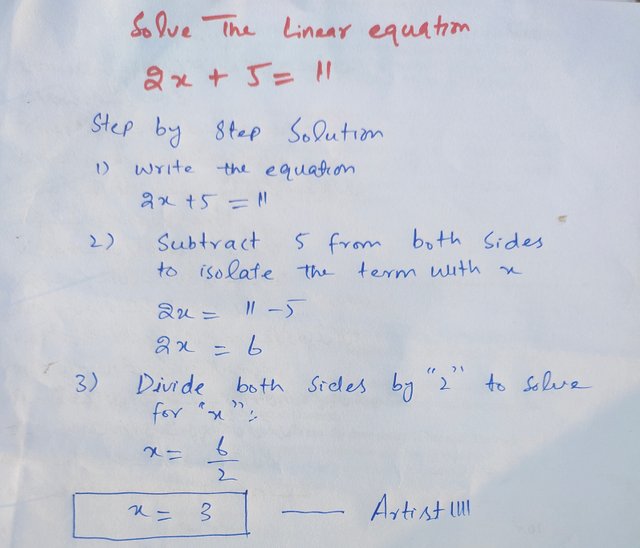 Solve The Linear equation
2x + 5 = 11
Step by Step Solution
1) Write the equation
2x + 5 = 11
2) Subtract 5 from both sides
to isolate the term with x
2x = 11 - 5
2x = 6
3) Divide both sides by "2" to solve
for "x":
x = 6/2
x = 3 —— Artist